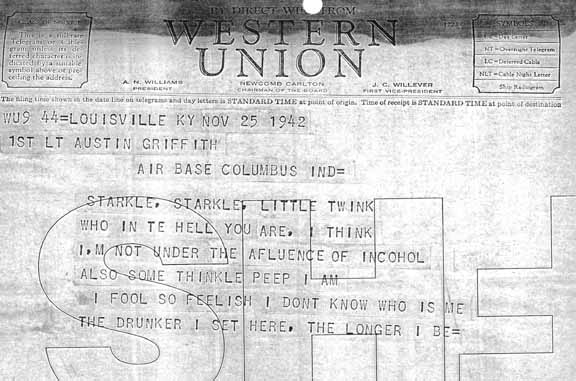 BY DIRECT WIRE FROM
WESTERN
UNION
CLASS OF SERVICE
This is a full-rate
Telegram or Cable-
gram unless its de-
ferred character is in-
dicated by a suitable
symbol above or pre-
ceding the address.
SYMBOLS
NT = Overnight Telegram
LC = Deferred Cable
NLT = Cable Night Letter
Ship Radiogram
A. N. WILLIAMS
PRESIDENT
NEWCOMB CARLTON
CHAIRMAN OF THE BOARD
J. C. WILLEVER
FIRST VICE-PRESIDENT
The filing time shown in the date line on telegrams and day letters is STANDARD TIME at point of origin. Time of receipt is STANDARD TIME at point of destination
WU9 44=LOUISVILLE KY NOV 25 1942
1ST LT AUSTIN GRIFFITH
AIR BASE COLUMBUS IND=
STARKLE, STARKLE, LITTLE TWINK
WHO IN TE HELL YOU ARE, I THINK
I,M NOT UNDER THE AFLUENCE OF INCOHOL
ALSO SOME THINKLE PEEP I AM
I FOOL SO FEELISH I DONT KNOW WHO IS ME
THE DRUNKER I SET HERE, THE LONGER I BE=